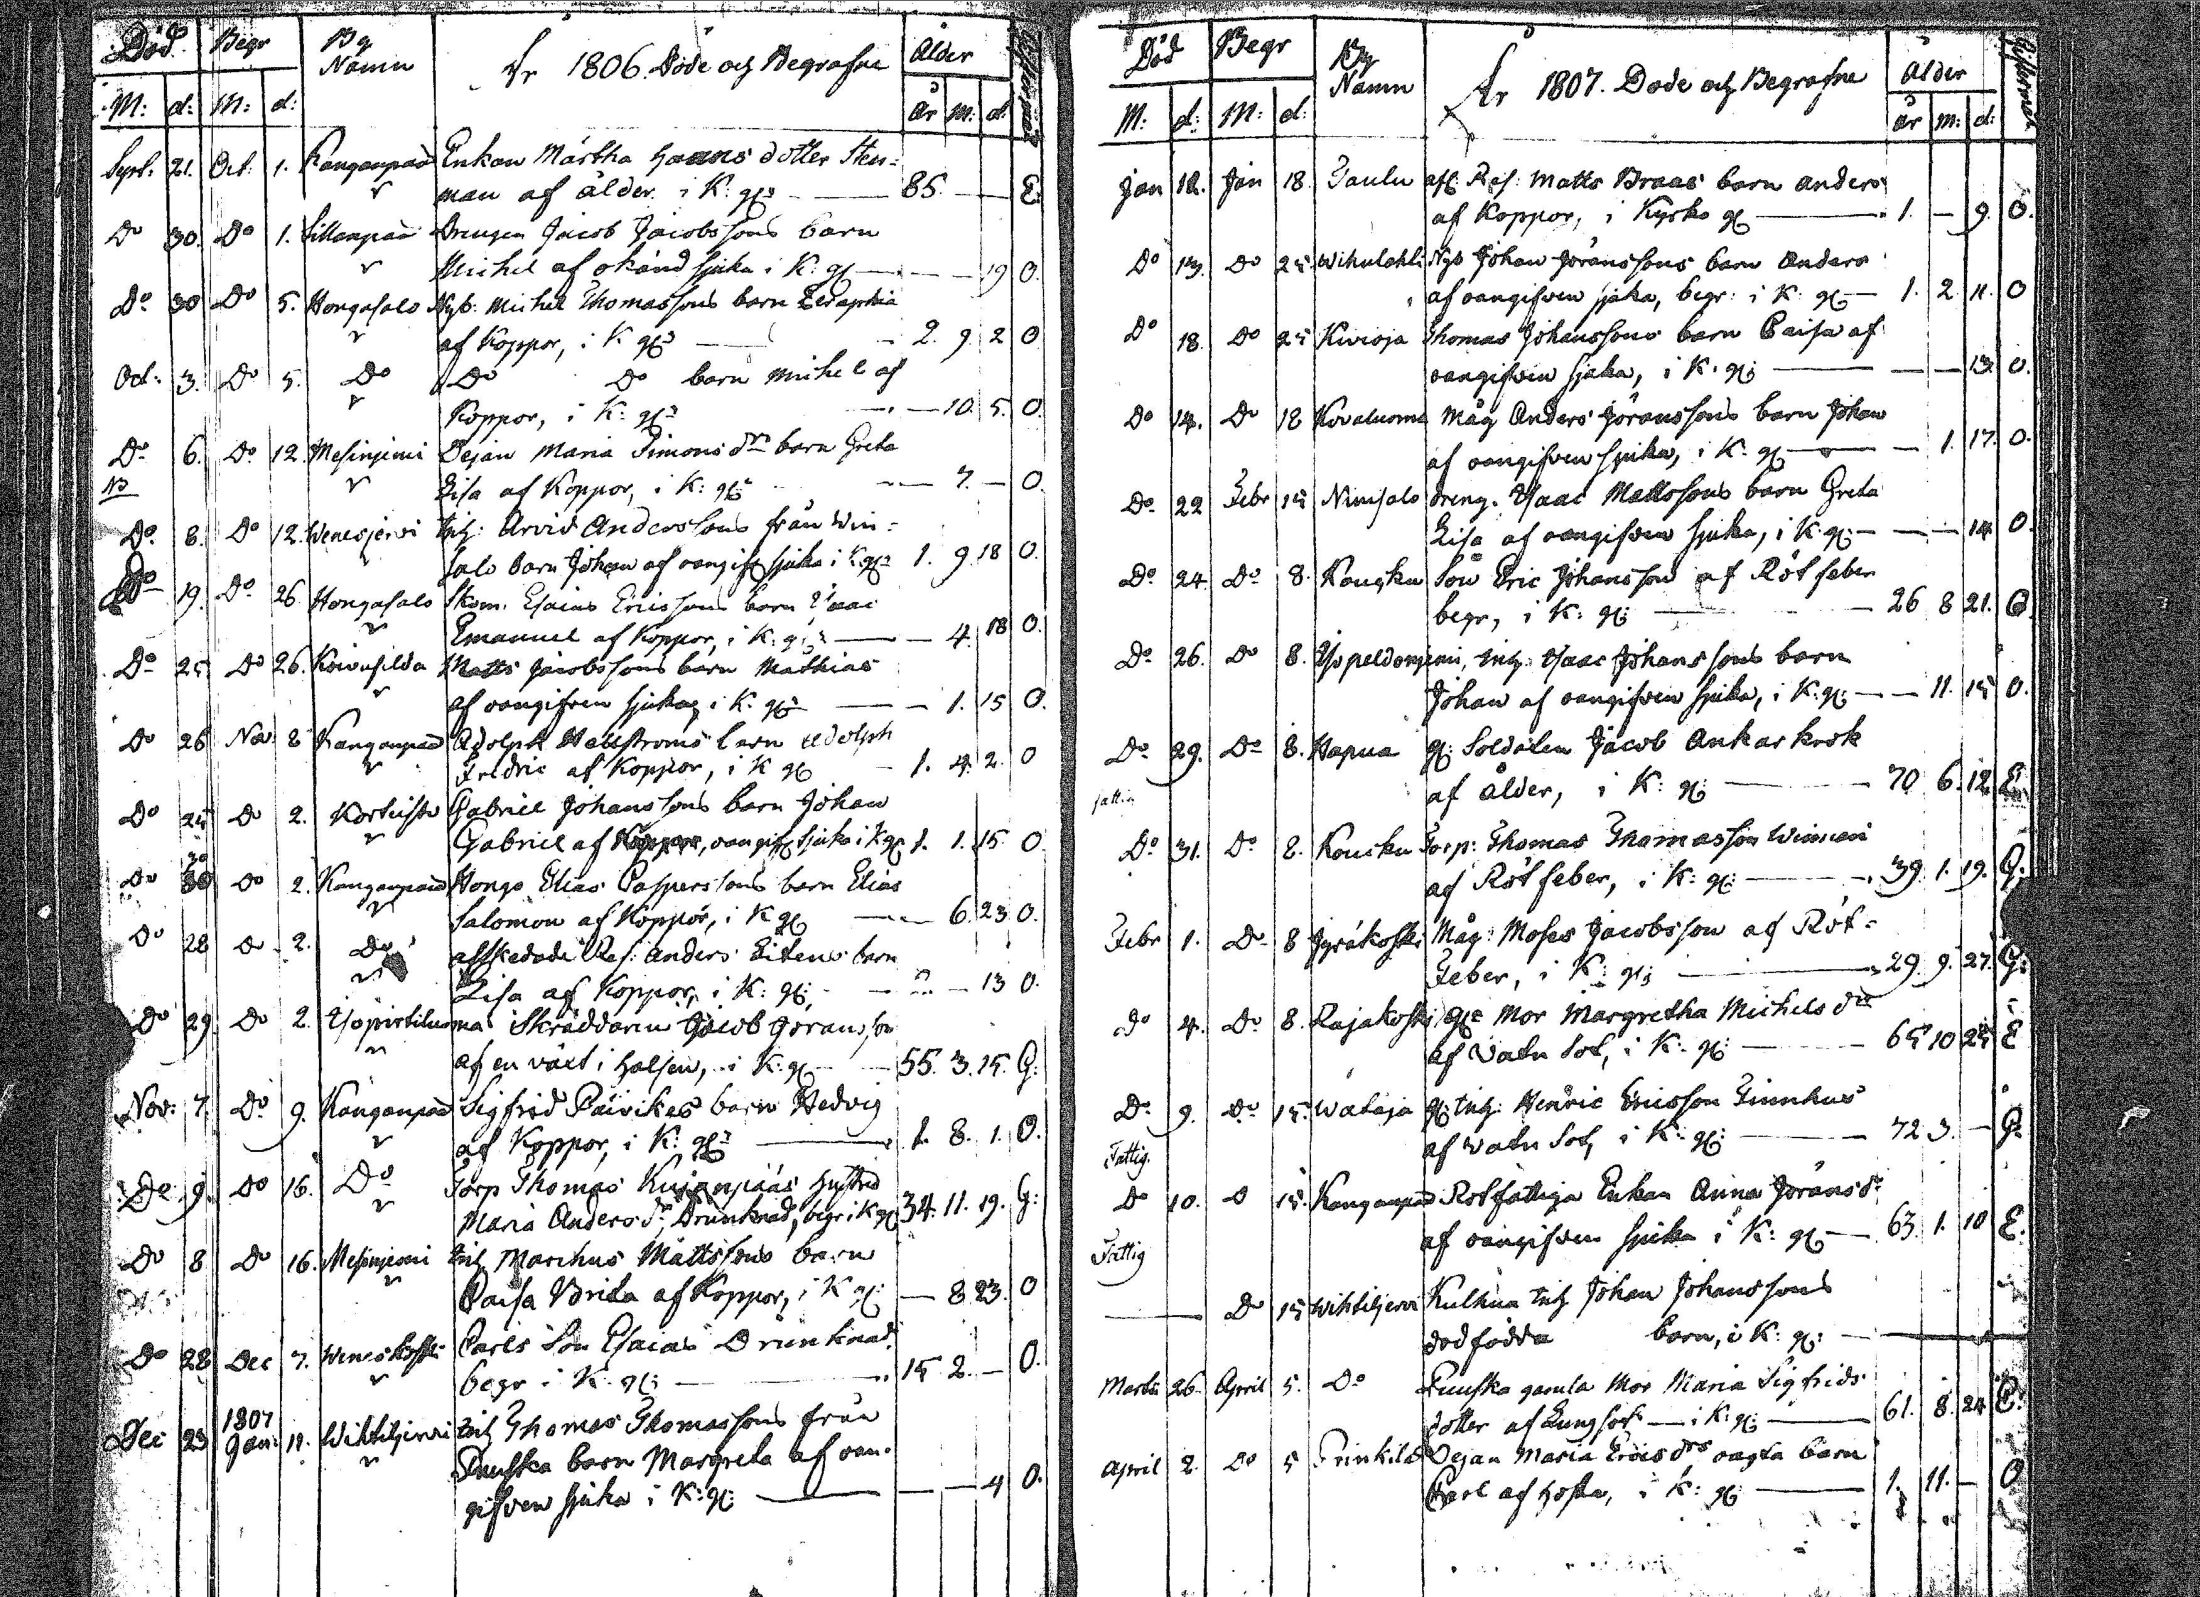 Död Begr By Namn År 1806 Döde och Begrafne Ålder
M: d: M: d: år m: d:
Sept. 21. Oct: 1. Kanganpää Enkan Märtha Hansdotter Sten=
man af ålder i K: gd: 85. — — E.
Do 30. Do 1. Sillanpää Drengen Jacob Jacobssons barn
Michel af okänd sjuka i K: g — — 19 O.
Do 30 Do 5. Hongasalo Nyb: Michel Thomassons barn Seraphia
af Koppor, i K gd: 2. 9. 2 O
Oct: 3. Do 5. Do Do Do barn Michel af
Koppor, i K: gd: — 10. 5. O.
Do 6. Do 12. Mesinjemi Dejan Maria Simons dr barn Greta
Lisa af Koppor, i K: gd: — 7. — O.
Do 8. Do 12. Wenesjerwi Inh: Arvid Anderssons från Win=
salo barn Johan af oangif sjuka i K gd: 1. 9. 18 O.
Do 19. Do 26 Hongasalo Skom. Esaias Ericssons barn Isaac
Emanuel af Koppor, i K: g: — 4. 18 O.
Do 25 Do 26. Koivusilda Matts Jacobssons barn Mathias
af oangifven sjuka, i K: gd: — 1. 15 O.
Do 26 Nov 2 Kanganpää Adolph Hellströms barn Adolph
Fredric af Koppor, i K gd — 1. 4. 2. O
Do 25 Do 2. Gabriel Johanssons barn Johan
Gabriel af Koppor, oangif sjuka i K gd 1. 1. 15 O.
Do 30 Do 2. Kanganpää Hongo Elias Caspers sons barn Elias
Salomon af Koppor, i K gd — 6. 23 O.
Do 28 Do 2. Do afskedade Ref: Anders Litens barn
Lisa af Koppor, i K: gd: — 13 O.
Do 29. Do 2. Skräddaren Jacob Göransson
af en växt i halsen, i K: gd 55. 3. 15. G:
Nov: 7. Do 9. Kanganpää Sigfrid Päivikes barn Hedvig
af Koppor, i K: gd: 1. 8. 1. O.
Do 9. Do 16. Do Torp Thomas Kujanpääs hustru
Maria Anders dr, Drunknad, begr i K gd 34. 11. 19. G:
Do 8 Do 16. Mesinjemi Inh Marchus Mattssons barn
Caisa Brita af Koppor, i K gd: — 8 23. O
Do 28 Dec 7. Weneskoski Carls Son Esaias Drunknad
begr i K. gd: 15 2. — O.
Dec 23 1807 Jan: 11. Wihtiljerwi Inh Thomas Thomassons från
Puuska barn Margreta af oan-
gifven sjuka i K: gd: — — 4 O.
Död Begr By Namn År 1807. Döde och Begrafne Ålder
M: d: M: d: år m: d:
Jan 12. Jan 18. Jaulu afsk: Ref: Matts Braas barn Anders
af Koppor, i Kyrko gd 1. — 9. O.
Do 13. Do 25 Wihulahti Nyb Johan Jöranssons barn Anders
af oangifven sjuka, begr: i K: gd 1. 2 11. O
Do 18. Do 25 Kivioja Thomas Johanssons barn Caisa af
oangifven sjuka, i K: gd: — — 13. O.
Do 14. Do 18 Kovaluoma Måg Anders Jöranssons barn Johan
af oangifven sjuka, i K: gd — 1. 17. O.
Do 22 Febr 15 Niinisalo dreng. Isaac Mattssons barn Greta
Lisa af oangifven sjuka, i K: gd: — — 14 O.
Do 24. Do 8. Kousku Son Eric Johansson af Rötfeber
begr, i K: gd: 26 8 21. G.
Do 26. Do 8. Inh: Isaac Johanssons barn
Johan af oangifven sjuka, i K: gd: — 11. 15 O.
Do 29. Do 8. Hapua gl: Soldaten Jacob Ankarkrok
fattig af ålder, i K: gd: 70 6. 12. E.
Do 31. Do 8. Kousku Torp: Thomas Thomasson
af Rötfeber, i K: gd: 39. 1. 19. G.
Febr 1. Do 8 Jyräkoski Måg: Moses Jacobsson af Röt=
Feber, i K: gd: 29. 9. 27. G:
Do 4. Do 8. Rajakoski gla Mor Margretha Michels dr
af Vatn Sot, i K: gd: 65 10 25 E
Do 9. Do 15. Wataja gl: Inh: Henric Ericsson Finnhus
af Vatn Sot, i K: gd: 72 3. — G.
Fattig.
Do 10. Do 15. Kanganpää Rotfattiga Enkan Anna Jörans dr
af oangifven sjuka i K: gd 63. 1. 10 E.
Fattig
— Do 15 Wihtiljerwi Kulkua Inh Johan Johanssons
dödfödda barn, i K: gd:
Martii 26. April 5. Do Puuska gamla Mor Maria Sigfrids
dotter af Lungsot — i K: gd: 61. 8. 24 E:
April 2. Do 5 Prinkilä Dejan Maria Erics drs oägta barn
Carl af hosta, i K: gd: 1. 11. — O